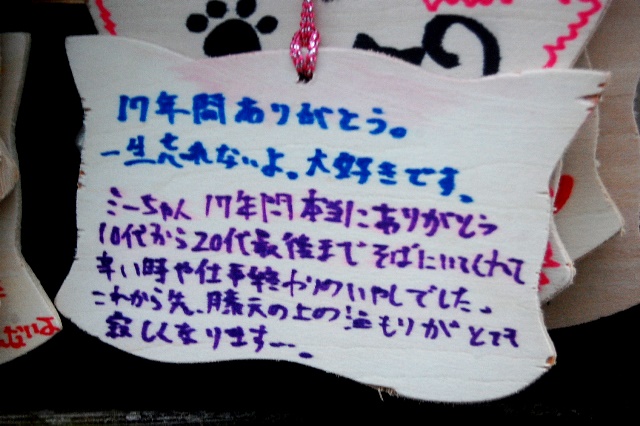 17年間ありがとう。
一生忘れないよ。大好きです。
ミーちゃん 17年間本当にありがとう
10代から20代最後までそばにいてくれて
辛い時や仕事終わりのいやしでした。
これから先、膝元の上の温もりがとても
寂しくなります…。
ないよ